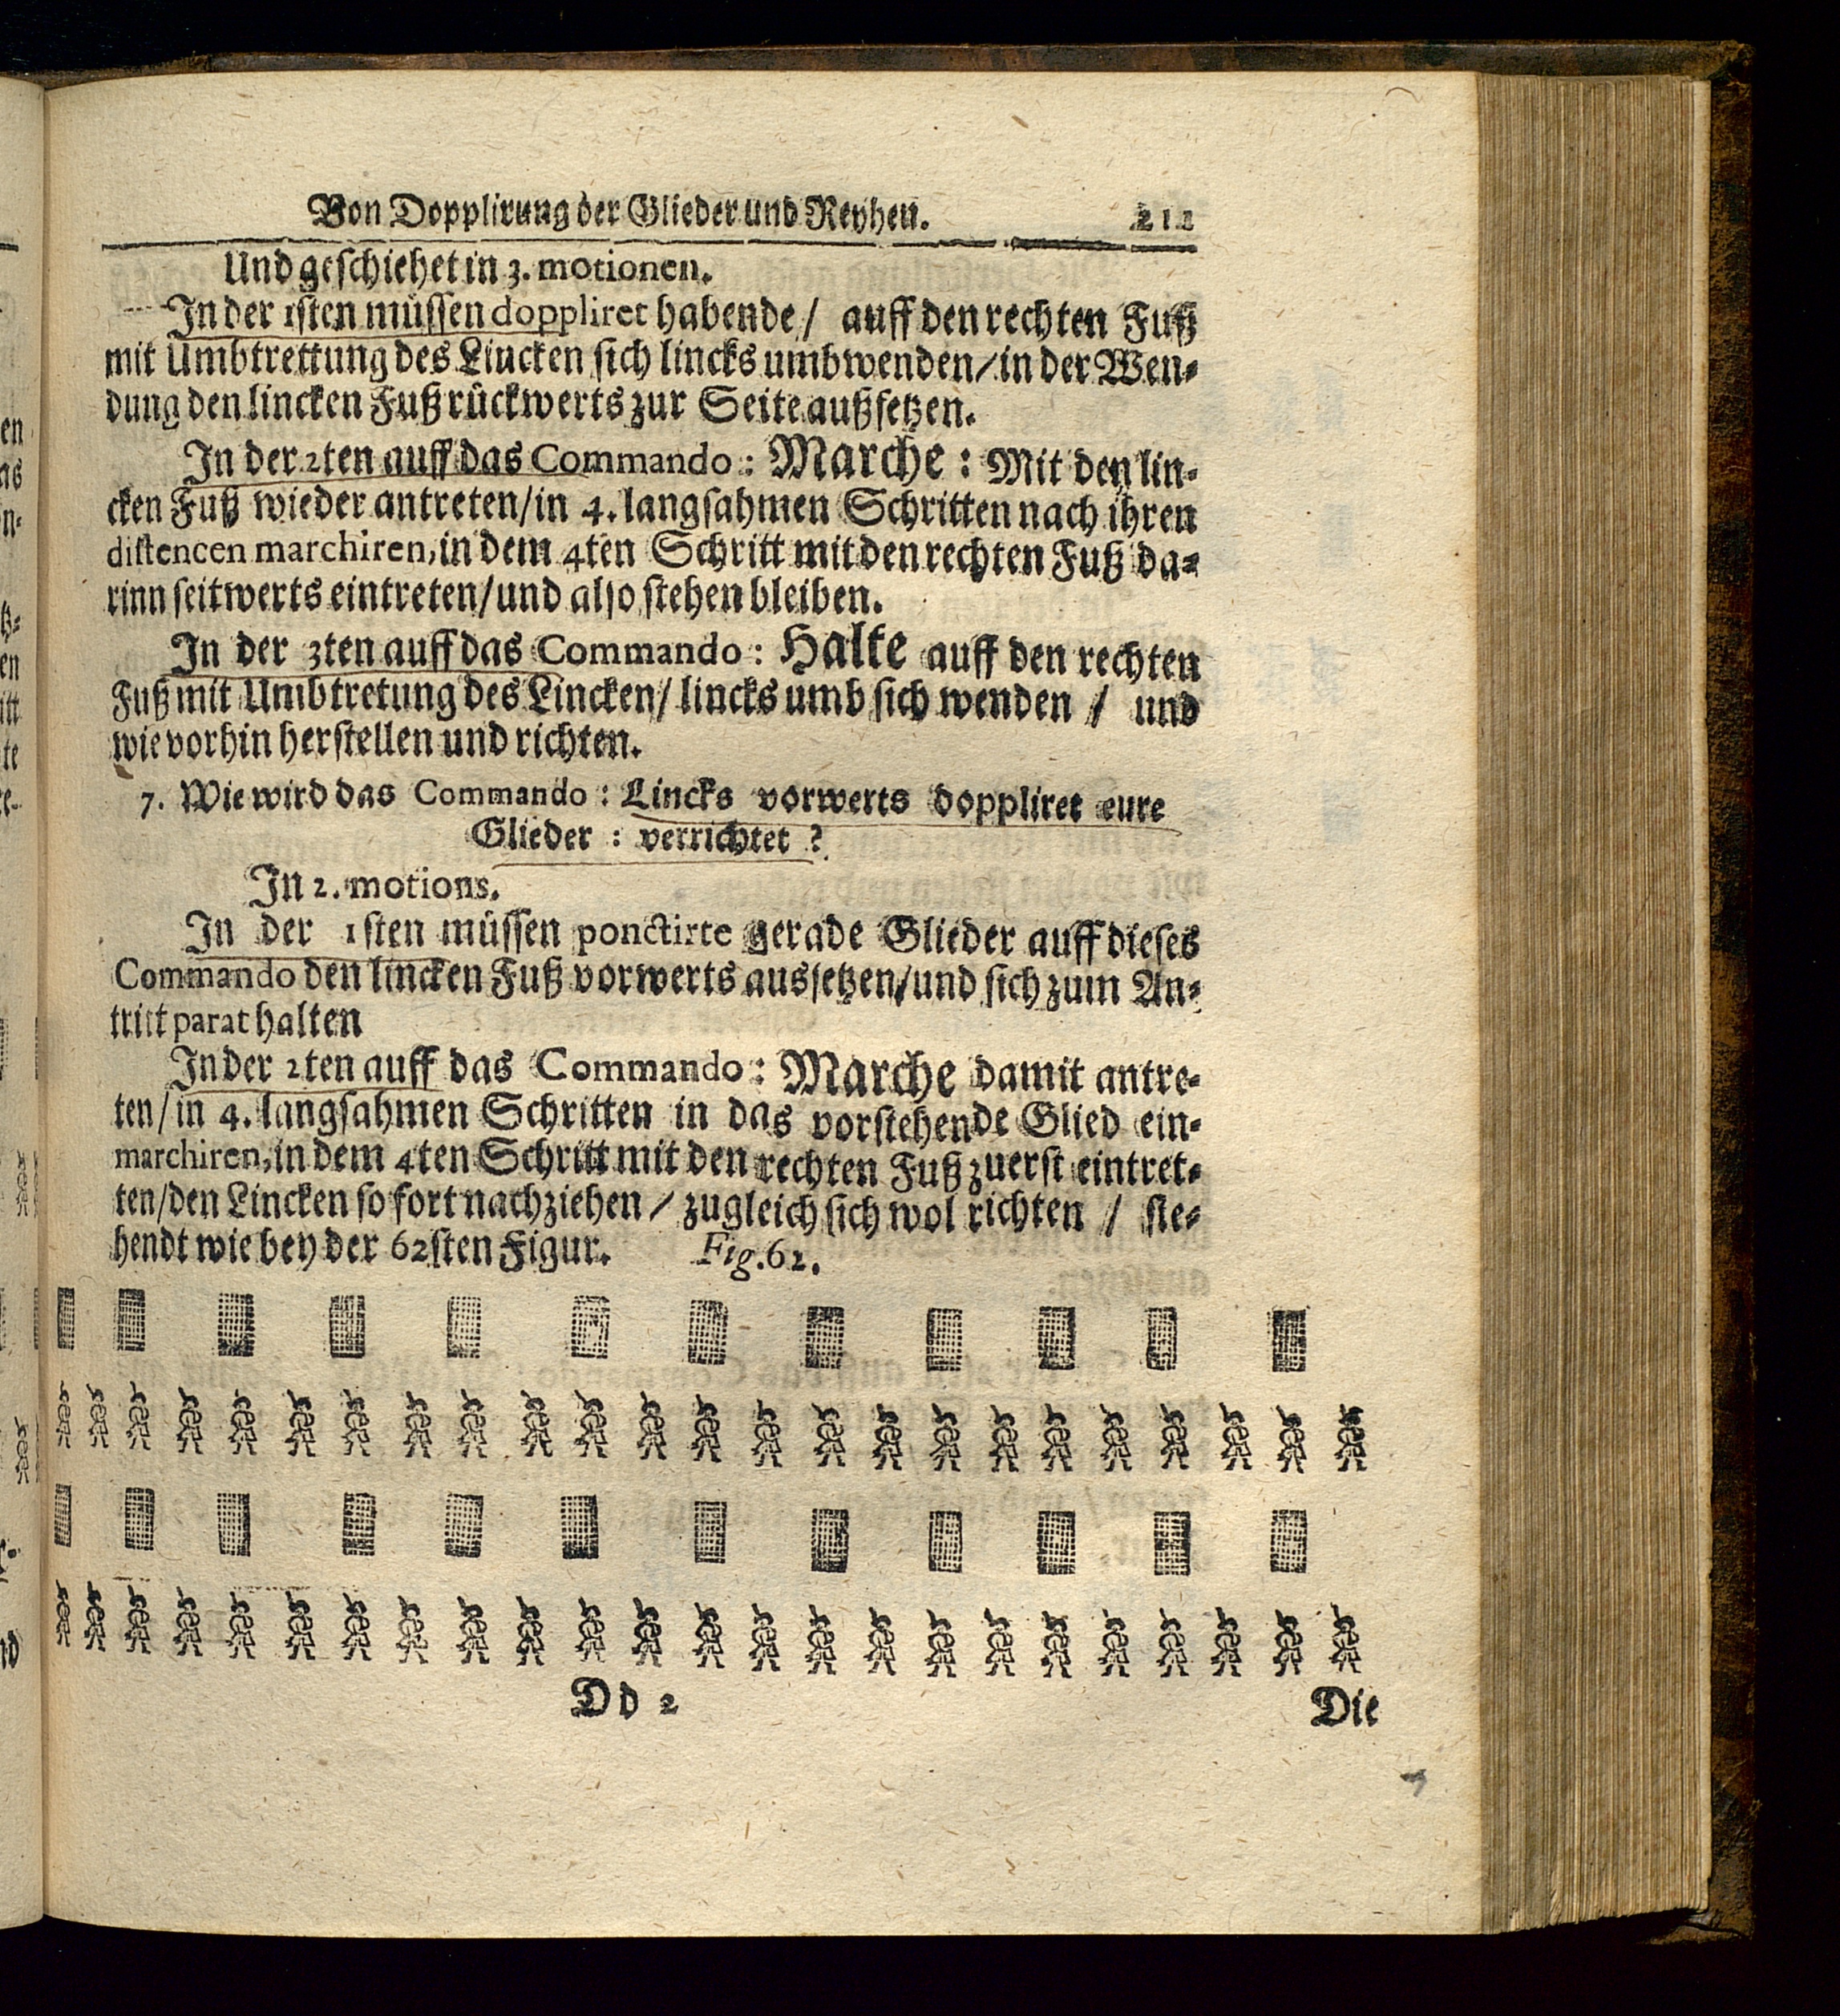 Von Dopplirung der Glieder und Reyhen. 211
Und geschiehet in 3. motionen.
In der 1sten müssen doppliret habende / auff den rechten Fuß
mit Umbtrettung des Lincken sich lincks umbwenden / in der Wen-
dung den lincken Fuß rückwerts zur Seite außsetzen.
In der 2ten auff das Commando: Marche: Mit den lin-
cken Fuß wieder antreten / in 4. langsahmen Schritten nach ihren
distencen marchiren, in dem 4ten Schritt mit den rechten Fuß da-
rinn seitwerts eintreten / und also stehen bleiben.
In der 3ten auff das Commando: Halte auff den rechten
Fuß mit Umbtretung des Lincken / lincks umb sich wenden / und
wie vorhin herstellen und richten.
7. Wie wird das Commando: Lincks vorwerts doppliret eure
Glieder: verrichtet?
In 2. motions.
In der 1sten müssen ponctirte gerade Glieder auff dieses
Commando den lincken Fuß vorwerts aussetzen / und sich zum An-
tritt parat halten
In der 2ten auff das Commando: Marche damit antre-
ten / in 4. langsahmen Schritten in das vorstehende Glied ein-
marchiren, in dem 4ten Schritt mit den rechten Fuß zuerst eintret-
ten / den Lincken so fort nachziehen / zugleich sich wol richten / ste-
hendt wie bey der 62sten Figur. Fig. 62.
Dd 2
Die